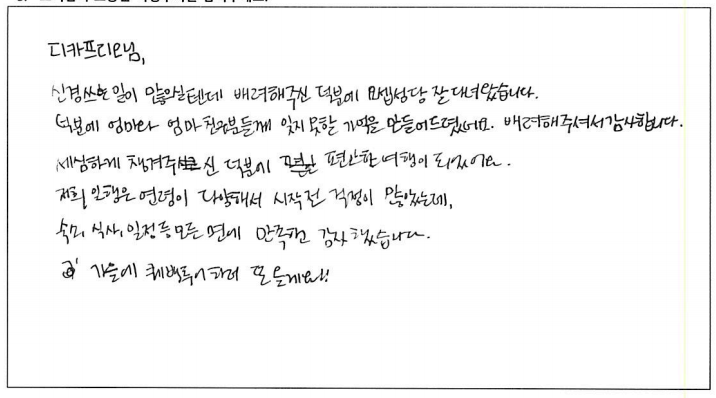 디카프리오님,
신경쓰는 일이 많으실텐데 배려해주신 덕분에 요셉성당 잘 다녀왔습니다.
덕분에 엄마와 엄마 친구분들께 잊지 못할 기억을 만들어드렸네요. 배려해주셔서 감사합니다.
세심하게 챙겨주신 덕분에 편안한 여행이 되었어요.
저희 일행은 연령이 다양해서 시작전 걱정이 많았는데,
숙소, 식사, 일정등 모든 면에 만족하고 감사했습니다.
가을에 퀘백투어하러 또 올게요!!